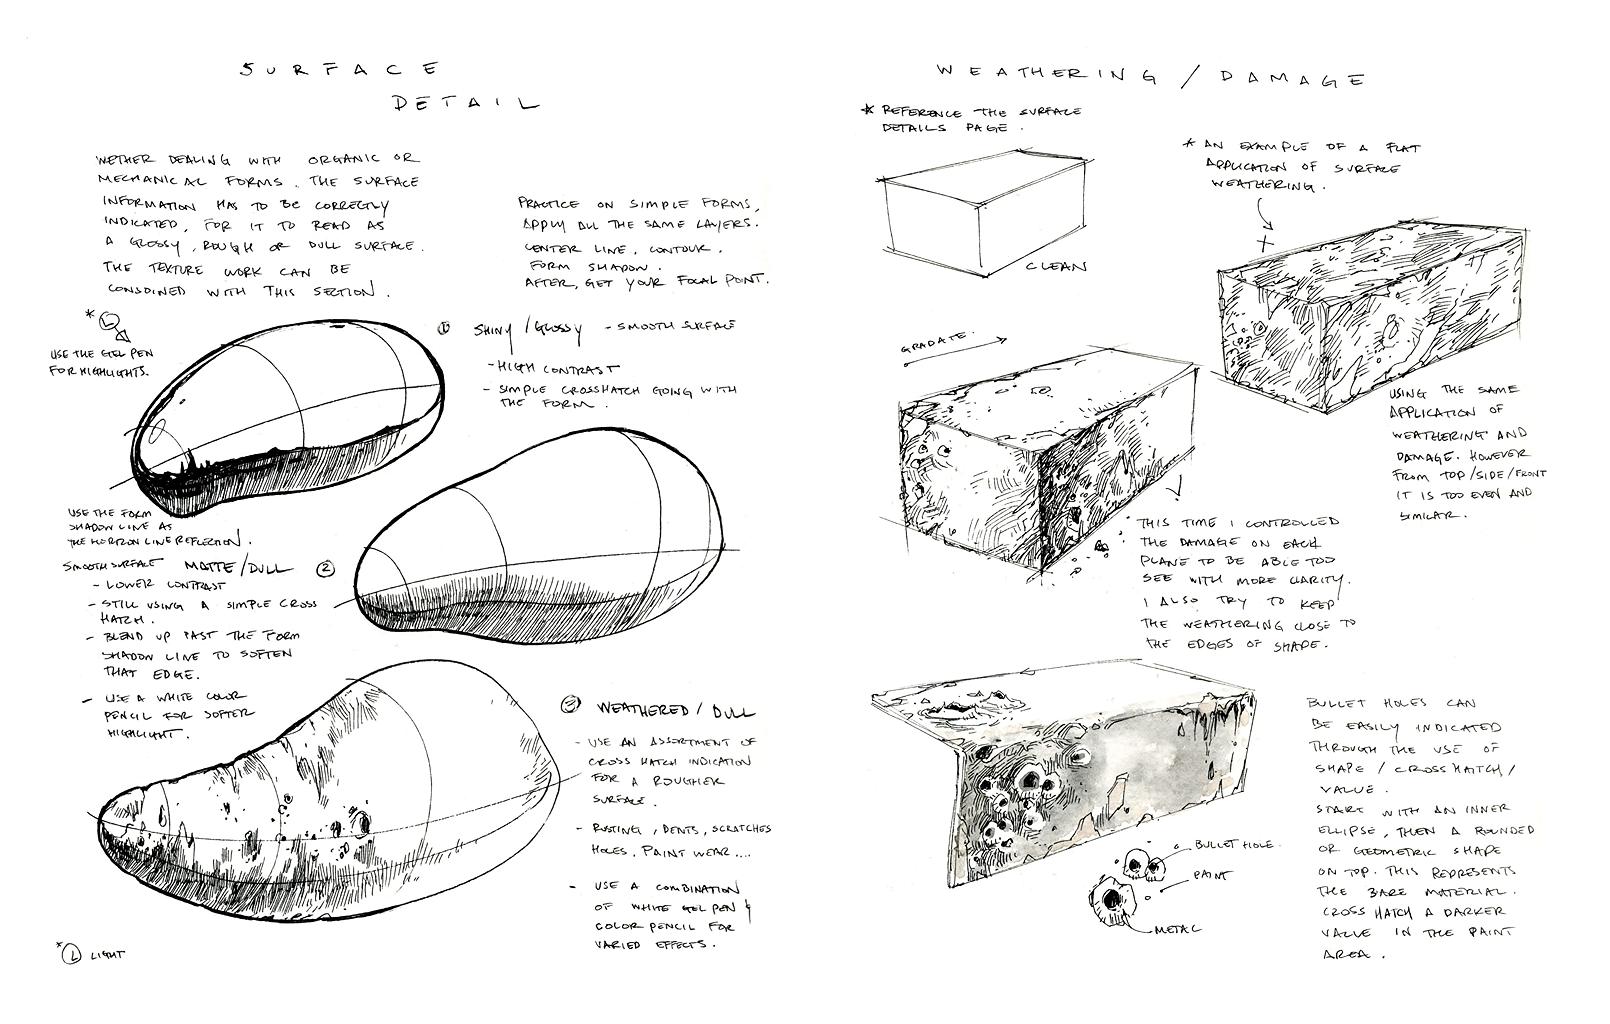 SURFACE
DETAIL
WETHER DEALING WITH ORGANIC OR
MECHANICAL FORMS. THE SURFACE
INFORMATION HAS TO BE CORRECTLY
INDICATED, FOR IT TO READ AS
A GLOSSY, ROUGH OR DULL SURFACE.
THE TEXTURE WORK CAN BE
CONBINED WITH THIS SECTION.
PRACTICE ON SIMPLE FORMS,
APPLY ALL THE SAME LAYERS.
CENTER LINE, CONTOUR.
FORM SHADOW.
AFTER, GET YOUR FOCAL POINT.
* L
USE THE GEL PEN
FOR HIGHLIGHTS.
1 SHINY/GLOSSY - SMOOTH SURFACE
- HIGH CONTRAST
- SIMPLE CROSSHATCH GOING WITH
THE FORM.
USE THE FORM
SHADOW LINE AS
THE HORIZON LINE REFLECTION.
SMOOTH SURFACE MATTE/DULL 2
- LOWER CONTRAST
- STILL USING A SIMPLE CROSS
HATCH.
- BLEND UP PAST THE FORM
SHADOW LINE TO SOFTEN
THAT EDGE.
- USE A WHITE COLOR
PENCIL FOR SOFTER
HIGHLIGHT.
3 WEATHERED/DULL
- USE AN ASSORTMENT OF
CROSS HATCH INDICATION
FOR A ROUGHER
SURFACE.
- RUSTING, DENTS, SCRATCHES
HOLES, PAINT WEAR....
- USE A COMBINATION
OF WHITE GEL PEN &
COLOR PENCIL FOR
VARIED EFFECTS.
* L LIGHT
WEATHERING / DAMAGE
* REFERENCE THE SURFACE
DETAILS PAGE.
CLEAN
* AN EXAMPLE OF A FLAT
APPLICATION OF SURFACE
WEATHERING.
USING THE SAME
APPLICATION OF
WEATHERING AND
DAMAGE. HOWEVER
FROM TOP/SIDE/FRONT
IT IS TOO EVEN AND
SIMILAR.
GRADATE.
THIS TIME I CONTROLLED
THE DAMAGE ON EACH
PLANE TO BE ABLE TOO
SEE WITH MORE CLARITY.
I ALSO TRY TO KEEP
THE WEATHERING CLOSE TO
THE EDGES OF SHAPE.
BULLET HOLES CAN
BE EASILY INDICATED
THROUGH THE USE OF
SHAPE/CROSS HATCH/
VALUE.
START WITH AN INNER
ELLIPSE, THEN A ROUNDED
OR GEOMETRIC SHAPE
ON TOP. THIS REPRESENTS
THE BARE MATERIAL.
CROSS HATCH A DARKER
VALUE IN THE PAINT
AREA.
BULLET HOLE.
PAINT
METAL